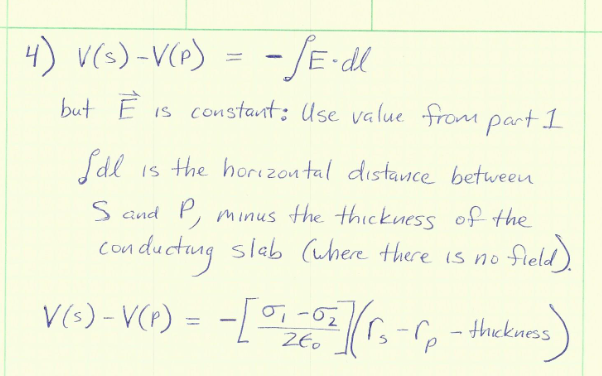 4) V(s) - V(P) = - ∫E · dl
but E⃗ is constant: Use value from part 1
∫dl is the horizontal distance between
S and P, minus the thickness of the
conducting slab (where there is no field).
V(s) - V(P) = -[σ₁ - σ₂ / 2ε₀](rₛ - rₚ - thickness)